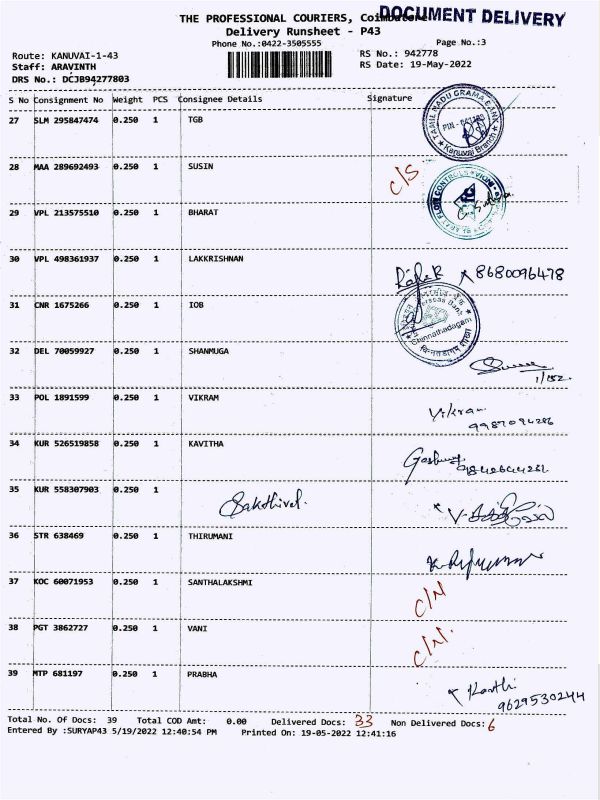 DOCUMENT DELIVERY
THE PROFESSIONAL COURIERS, Coimbatore
Delivery Runsheet - P43
Phone No.:0422-3505555
Page No.:3
Route: KANUVAI-1-43
RS No.: 942778
Staff: ARAVINTH
RS Date: 19-May-2022
DRS No.: DCJB94277803
S No Consignment No Weight PCS Consignee Details Signature
27 SLM 295847474 0.250 1 TGB
TAMIL NADU GRAMA BANK
Kanuvai Branch
28 MAA 289692493 0.250 1 SUSIN
C/S
29 VPL 213575510 0.250 1 BHARAT
30 VPL 498361937 0.250 1 LAKKRISHNAN
8680096478
31 CNR 1675266 0.250 1 IOB
Overseas Bank
Chinnathadagam
32 DEL 70059927 0.250 1 SHANMUGA
33 POL 1891599 0.250 1 VIKRAM
Vikram
34 KUR 526519858 0.250 1 KAVITHA
35 KUR 558307903 0.250 1
Sakthivel.
36 STR 638469 0.250 1 THIRUMANI
37 KOC 60071953 0.250 1 SANTHALAKSHMI
C/N
38 PGT 3862727 0.250 1 VANI
C/N.
39 MTP 681197 0.250 1 PRABHA
Karthi
9629530244
Total No. Of Docs: 39 Total COD Amt: 0.00 Delivered Docs: 33 Non Delivered Docs: 6
Entered By :SURYAP43 5/19/2022 12:40:54 PM Printed On: 19-05-2022 12:41:16